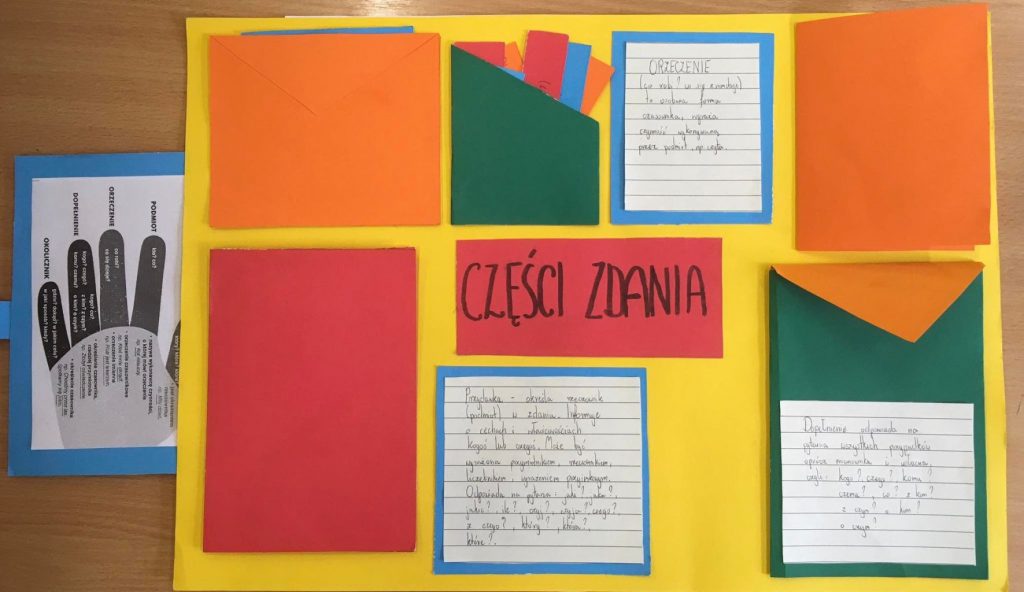 ORZECZENIE
(co robi? co się z nim dzieje)
to osobowa forma
czasownika, wyraża
czynność wykonywaną
przez podmiot, np. czyta.
CZĘŚCI ZDANIA
Przydawka - określa rzeczownik
(podmiot) w zdaniu. Informuje
o cechach i właściwościach
kogoś lub czegoś. Może być
wyrażona przymiotnikiem, rzeczownikiem,
liczebnikiem, wyrażeniem przyimkowym.
Odpowiada na pytania: jaka?, jaki?,
jakie?, ile?, czyj?, czyja?, czego?
z czego?, który?, która?,
które?.
Dopełnienie odpowiada na
pytania wszystkich przypadków
oprócz mianownika i wołacza,
czyli: kogo? czego? komu?
czemu?, co? z kim?
z czym? o kim?
o czym?
PODMIOT
kto? co?
ORZECZENIE
co robi?
co się z nim dzieje?
DOPEŁNIENIE
kogo? czego?
komu? czemu?
kogo? co?
z kim? z czym?
o kim? o czym?
OKOLICZNIK
gdzie? dokąd? w jakim celu?
w jaki sposób? kiedy?
• nazywa wykonawcę czynności,
o której mówi orzeczenie
• orzeczenie czasownikowe
• orzeczenie imienne
• określenie czasownika,
rzadziej przymiotnika
• określenie czasownika